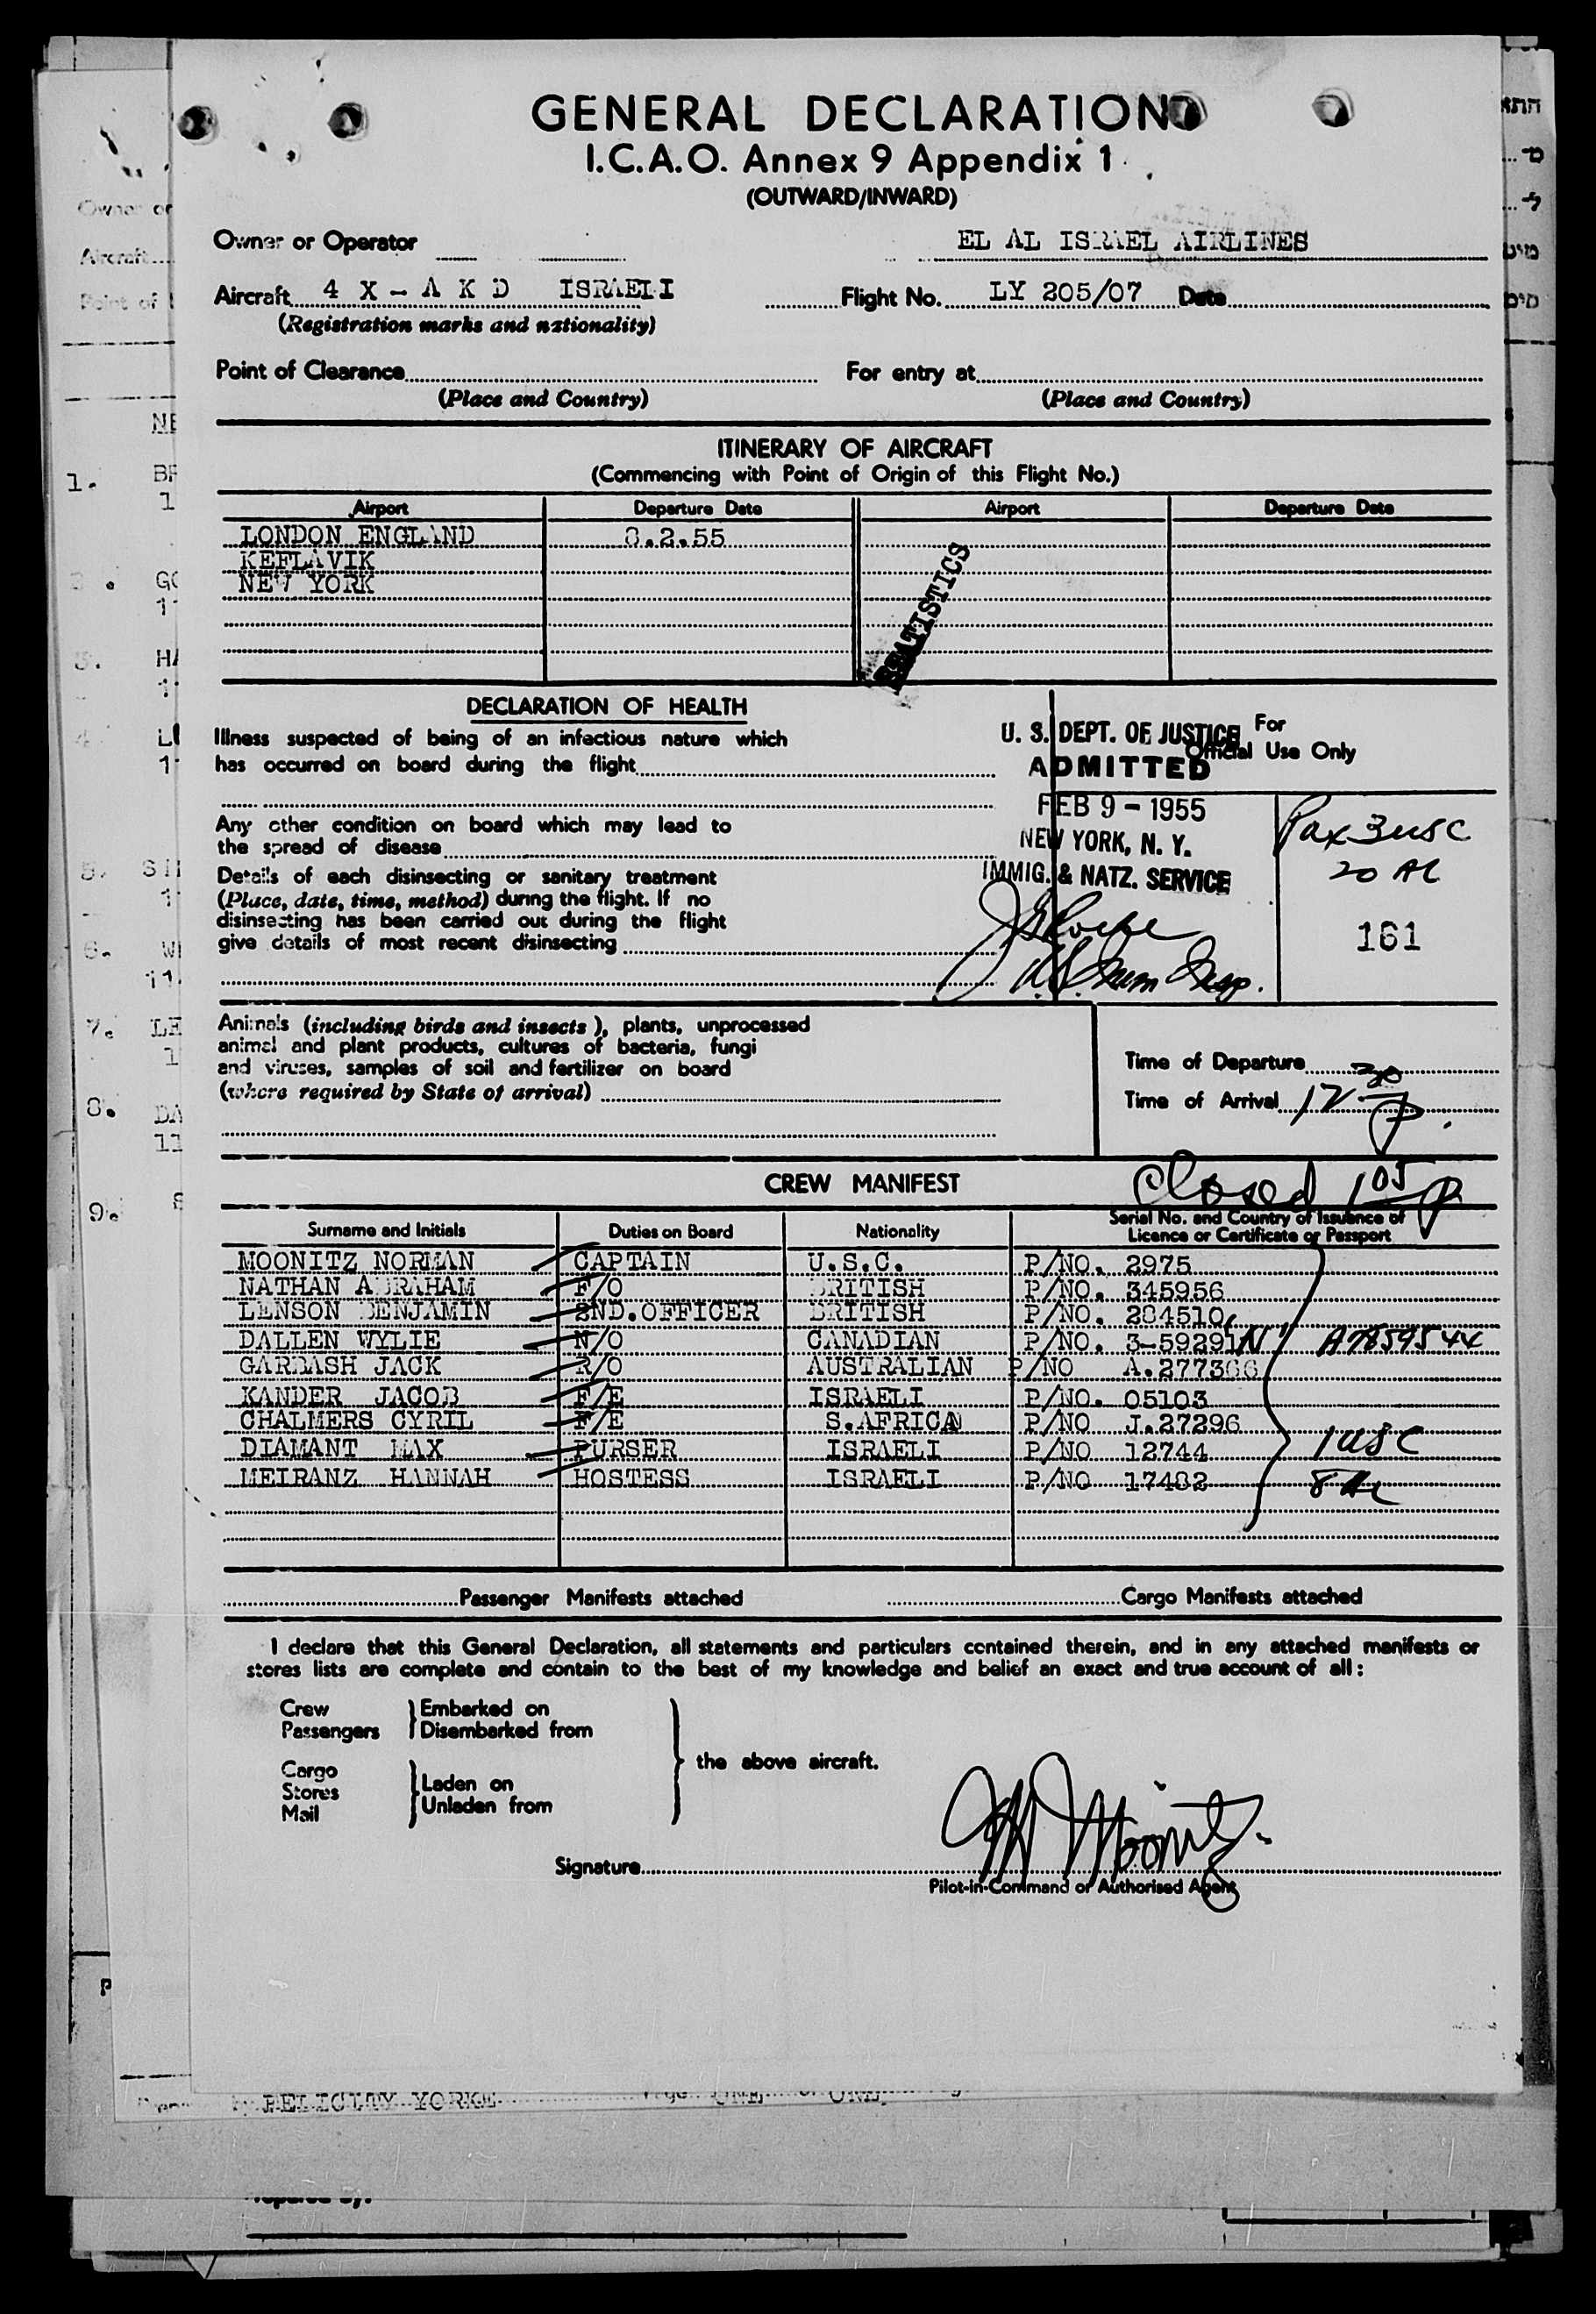 GENERAL DECLARATION
I.C.A.O. Annex 9 Appendix 1
(OUTWARD/INWARD)
Owner or Operator EL AL ISRAEL AIRLINES
Aircraft 4 X - A K D ISRAELI Flight No. LY 205/07 Date
(Registration marks and nationality)
Point of Clearance For entry at
(Place and Country) (Place and Country)
ITINERARY OF AIRCRAFT
(Commencing with Point of Origin of this Flight No.)
Airport Departure Date Airport Departure Date
LONDON ENGLAND 8.2.55
KEFLAVIK
NEW YORK
STATISTICS
DECLARATION OF HEALTH
Illness suspected of being of an infectious nature which
has occurred on board during the flight
Any other condition on board which may lead to
the spread of disease
Details of each disinsecting or sanitary treatment
(Place, date, time, method) during the flight. If no
disinsecting has been carried out during the flight
give details of most recent disinsecting
For
Official Use Only
U. S. DEPT. OF JUSTICE
ADMITTED
FEB 9 - 1955
NEW YORK, N. Y.
IMMIG. & NATZ. SERVICE
Pax 3 USC
20 AL
161
Animals (including birds and insects), plants, unprocessed
animal and plant products, cultures of bacteria, fungi
and viruses, samples of soil and fertilizer on board
(where required by State of arrival)
Time of Departure
Time of Arrival 12 30 P.
Closed 1 05 P
CREW MANIFEST
Surname and Initials Duties on Board Nationality Serial No. and Country of Issuance of
Licence or Certificate or Passport
MOONITZ NORMAN CAPTAIN U.S.C. P/NO. 2975
NATHAN ABRAHAM F/O BRITISH P/NO. 345956
LENSON BENJAMIN 2ND.OFFICER BRITISH P/NO. 284510
DALLEN WYLIE N/O CANADIAN P/NO. 3-59291 A7859544
GARDASH JACK R/O AUSTRALIAN P/NO A.277366
KANDER JACOB F/E ISRAELI P/NO. 05103
CHALMERS CYRIL F/E S.AFRICAN P/NO J.27296
DIAMANT MAX PURSER ISRAELI P/NO 12744 1 USC
MEIRANZ HANNAH HOSTESS ISRAELI P/NO 17482 8 AL
Passenger Manifests attached Cargo Manifests attached
I declare that this General Declaration, all statements and particulars contained therein, and in any attached manifests or
stores lists are complete and contain to the best of my knowledge and belief an exact and true account of all:
Crew Embarked on
Passengers Disembarked from
the above aircraft.
Cargo
Stores Laden on
Mail Unladen from
Signature N Moonitz
Pilot-in-Command or Authorised Agent
FELICITY YORKE ONE ONE